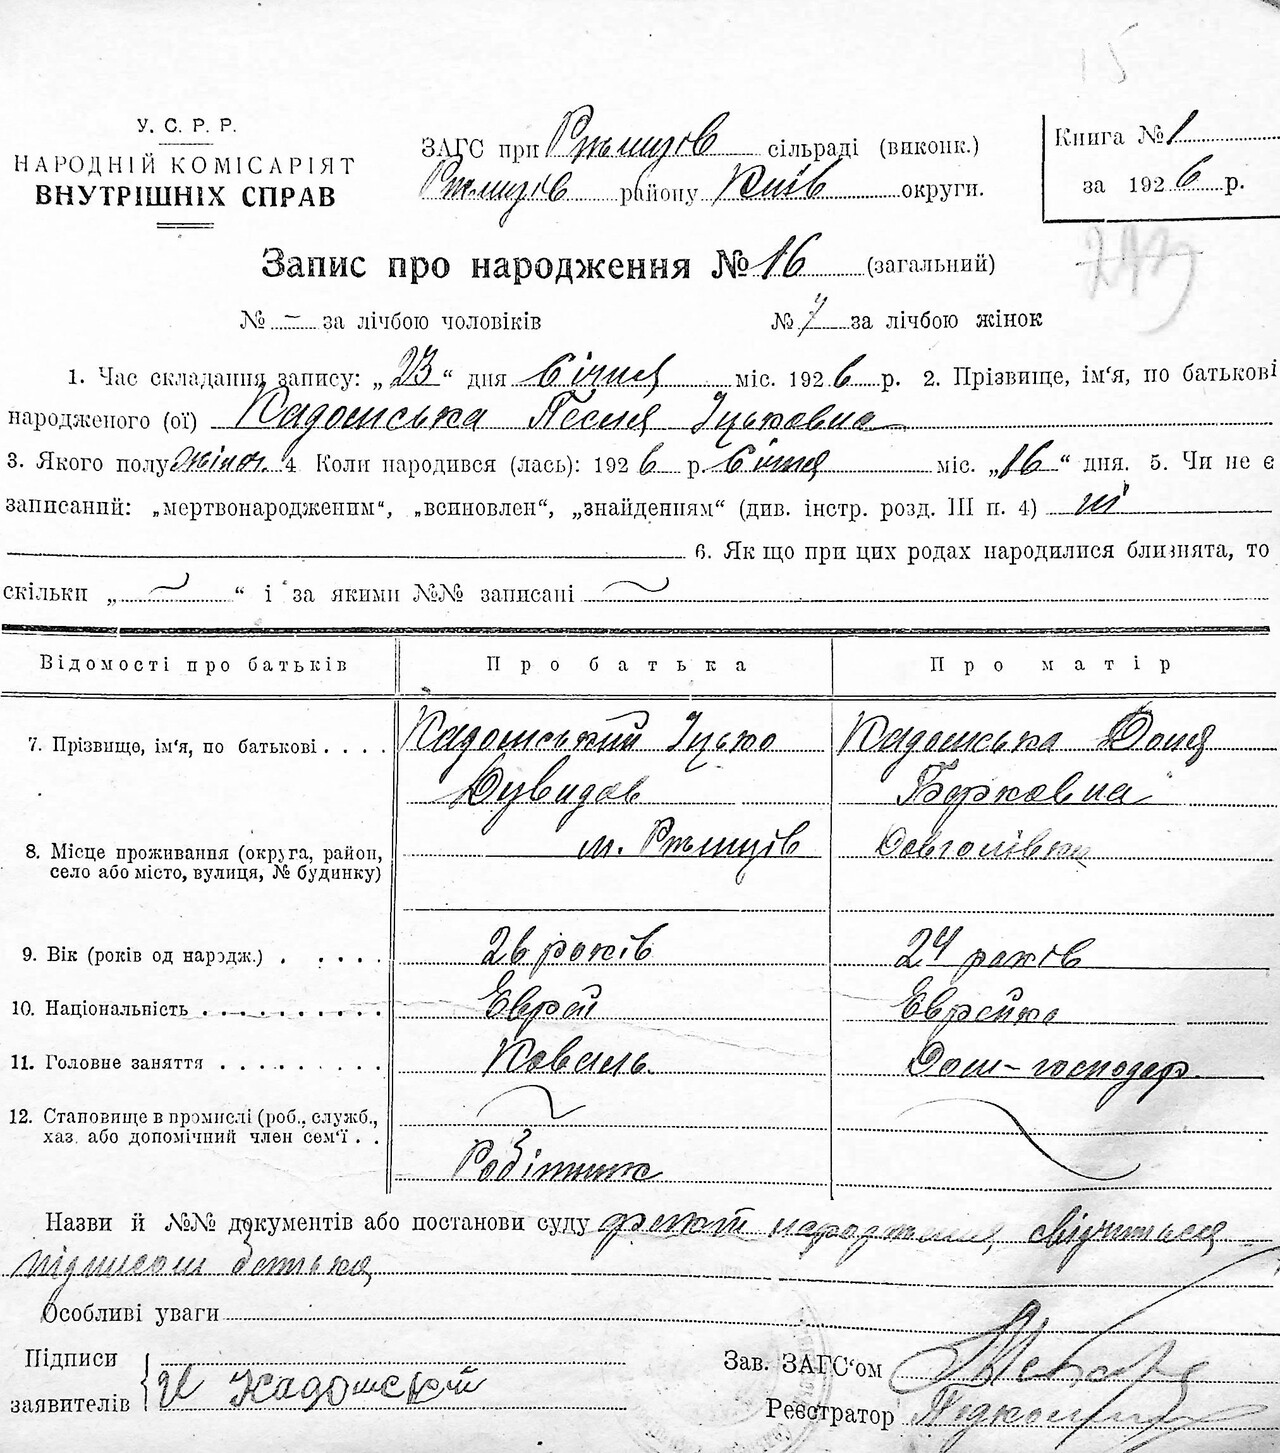 15
У. С. Р. Р.
НАРОДНІЙ КОМІСАРІЯТ
ВНУТРІШНІХ СПРАВ
ЗАГС при Ржищів сільраді (виконк.)
Ржищів району Київ округи.
Книга № 1
за 1926 р.
Запис про народження № 16 (загальний)
№ – за лічбою чоловіків № 7 за лічбою жінок
1. Час складання запису: „23“ дня Січня міс. 1926 р. 2. Прізвище, ім‘я, по батькові
народженого (ої) Кадомська Песя Іцьковна
3. Якого полу жіноч. 4 Коли народився (лась): 1926 р. Січня міс. „16“ дня. 5. Чи не є
записаний: „мертвонародженим“, „всиновлен“, „знайденням“ (див. інстр. розд. III п. 4) ні
6. Як що при цих родах народилися близнята, то
скільки „ “ і за якими №№ записані
Відомості про батьків Про батька Про матір
7. Прізвище, ім'я, по батькові . . . . Кадомський Іцько Кадомська Доня
Дувидов Борковна
8. Місце проживання (округа, район, м. Ржищів
село або місто, вулиця, № будинку)
9. Вік (років од нардж.) . . . . . 26 років 24 років
10. Національність . . . . . . . . . . Єврей Єврейка
11. Головне заняття . . . . . . . . . Коваль. Дом-господар.
12. Становище в промислі (роб., служб.,
хаз. або допомічний член сем‘ї . .
Робітник
Назви й №№ документів або постанови суду факт народження, свідчиться
підписом батька
Особливі уваги
Підписи
заявителів И Кадомский
Зав. ЗАГС‘ом
Реєстратор